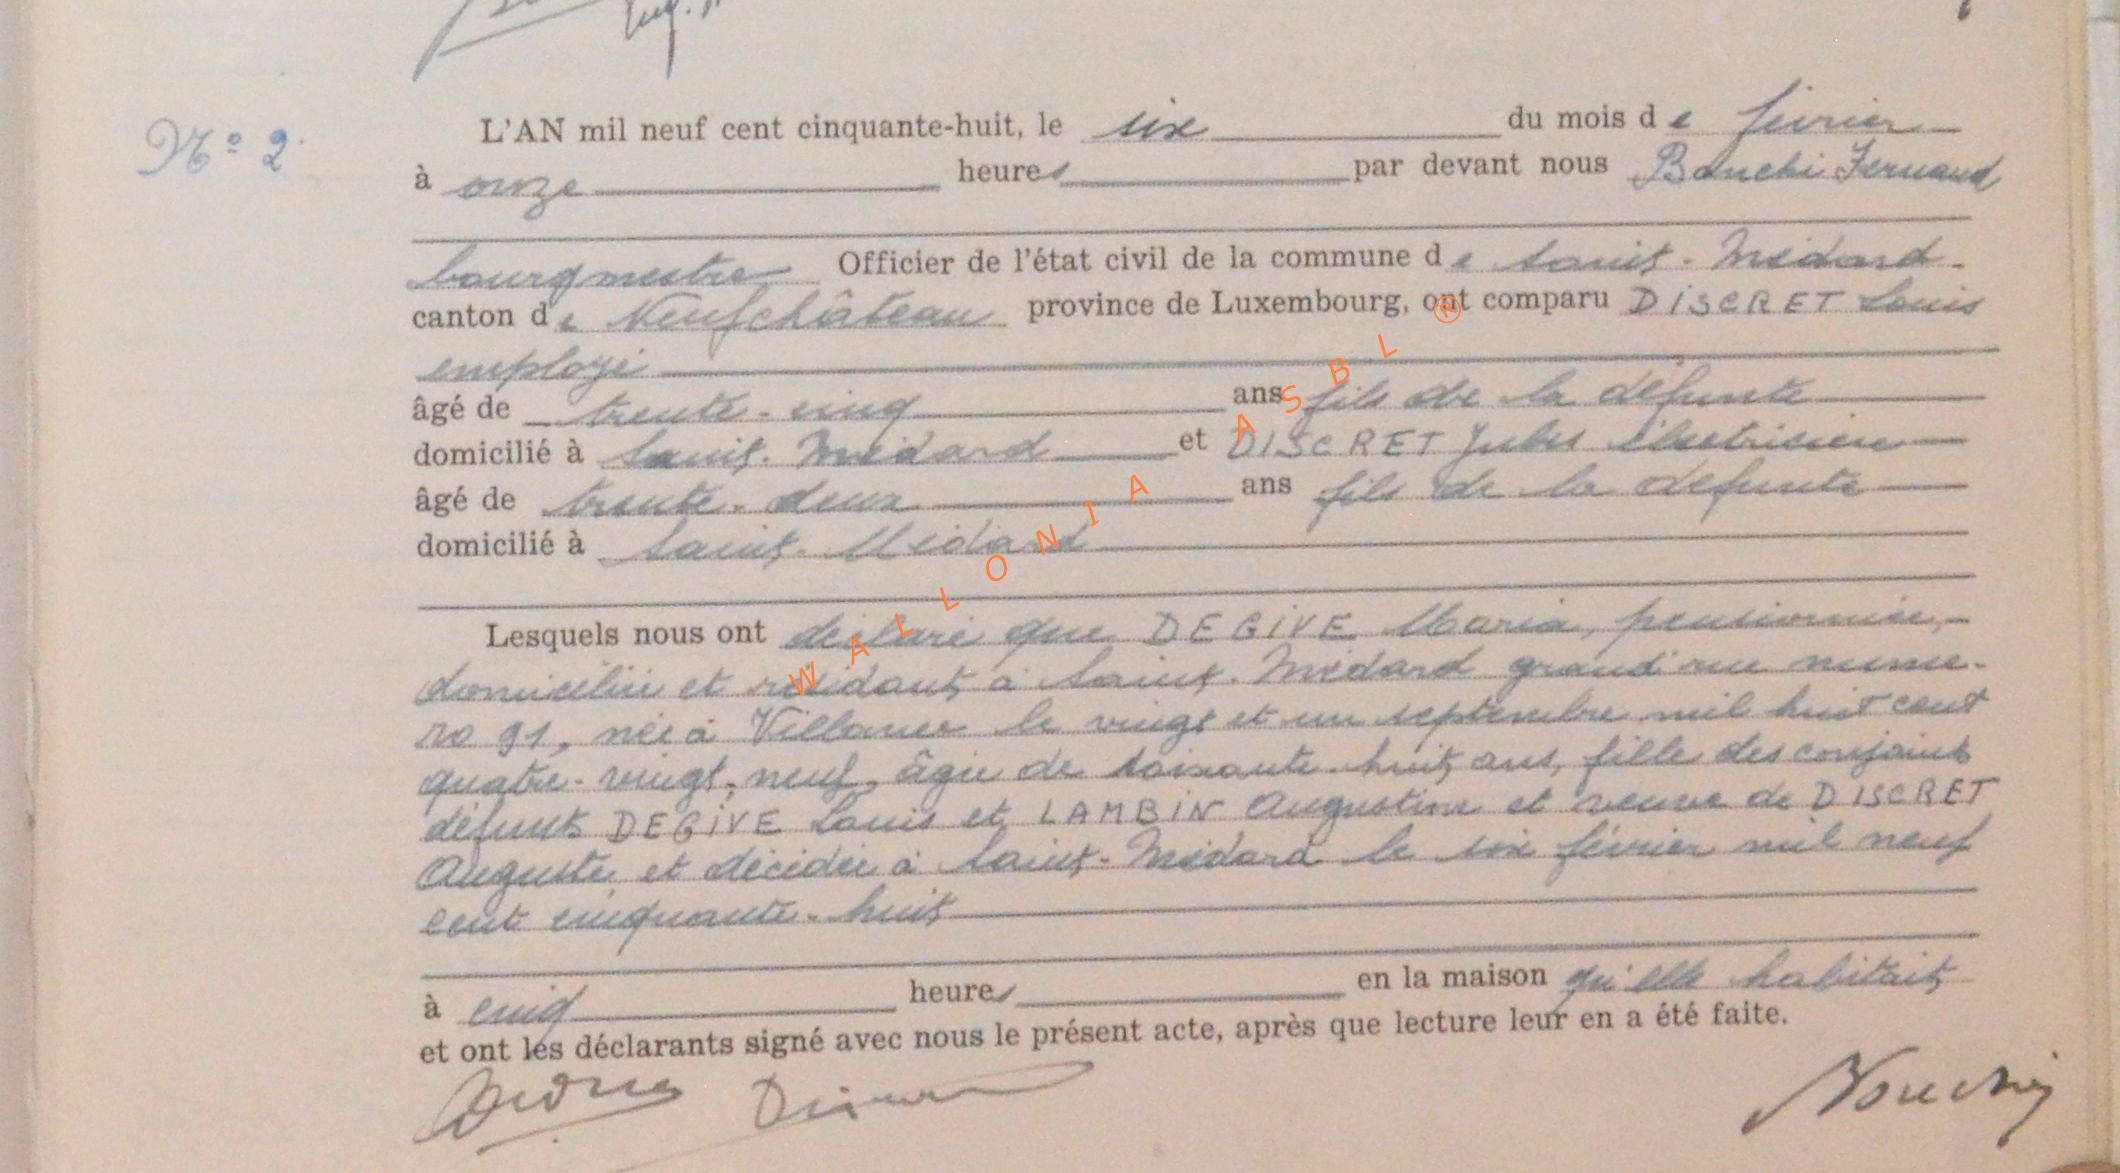 N° 2
L'AN mil neuf cent cinquante-huit, le six du mois de février
à onze heures par devant nous Banchi Fernand
bourgmestre Officier de l'état civil de la commune de Saint-Médard
canton de Neufchâteau province de Luxembourg, ont comparu DISCRET Louis
employé
âgé de trente-cinq ans fils de la défunte
domicilié à Saint-Médard et DISCRET Jules électricien
âgé de trente-deux ans fils de la défunte
domicilié à Saint-Médard
Lesquels nous ont déclaré que DEGIVE Maria, pensionnée,
domiciliée et résidant à Saint-Médard grand'rue numé-
ro 91, née à Villance le vingt et un septembre mil huit cent
quatre-vingt-neuf, âgée de soixante-huit ans, fille des conjoints
défunts DEGIVE Louis et LAMBIN Augustine et veuve de DISCRET
Auguste, et décédée à Saint-Médard le six février mil neuf
cent cinquante-huit
à cinq heures en la maison qu'elle habitait
et ont les déclarants signé avec nous le présent acte, après que lecture leur en a été faite.
WALLONIA ASBL ®